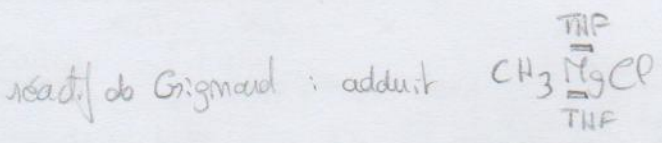 THF
réactif de Grignard : adduit CH3MgCl
THF